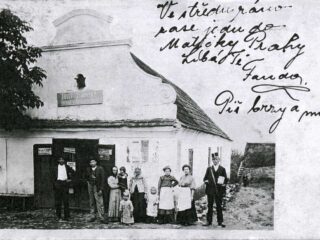 Ve středu ráno
zase jedu do
Matičky Prahy
Líbá Tě
Fanda.
Piš brzy a